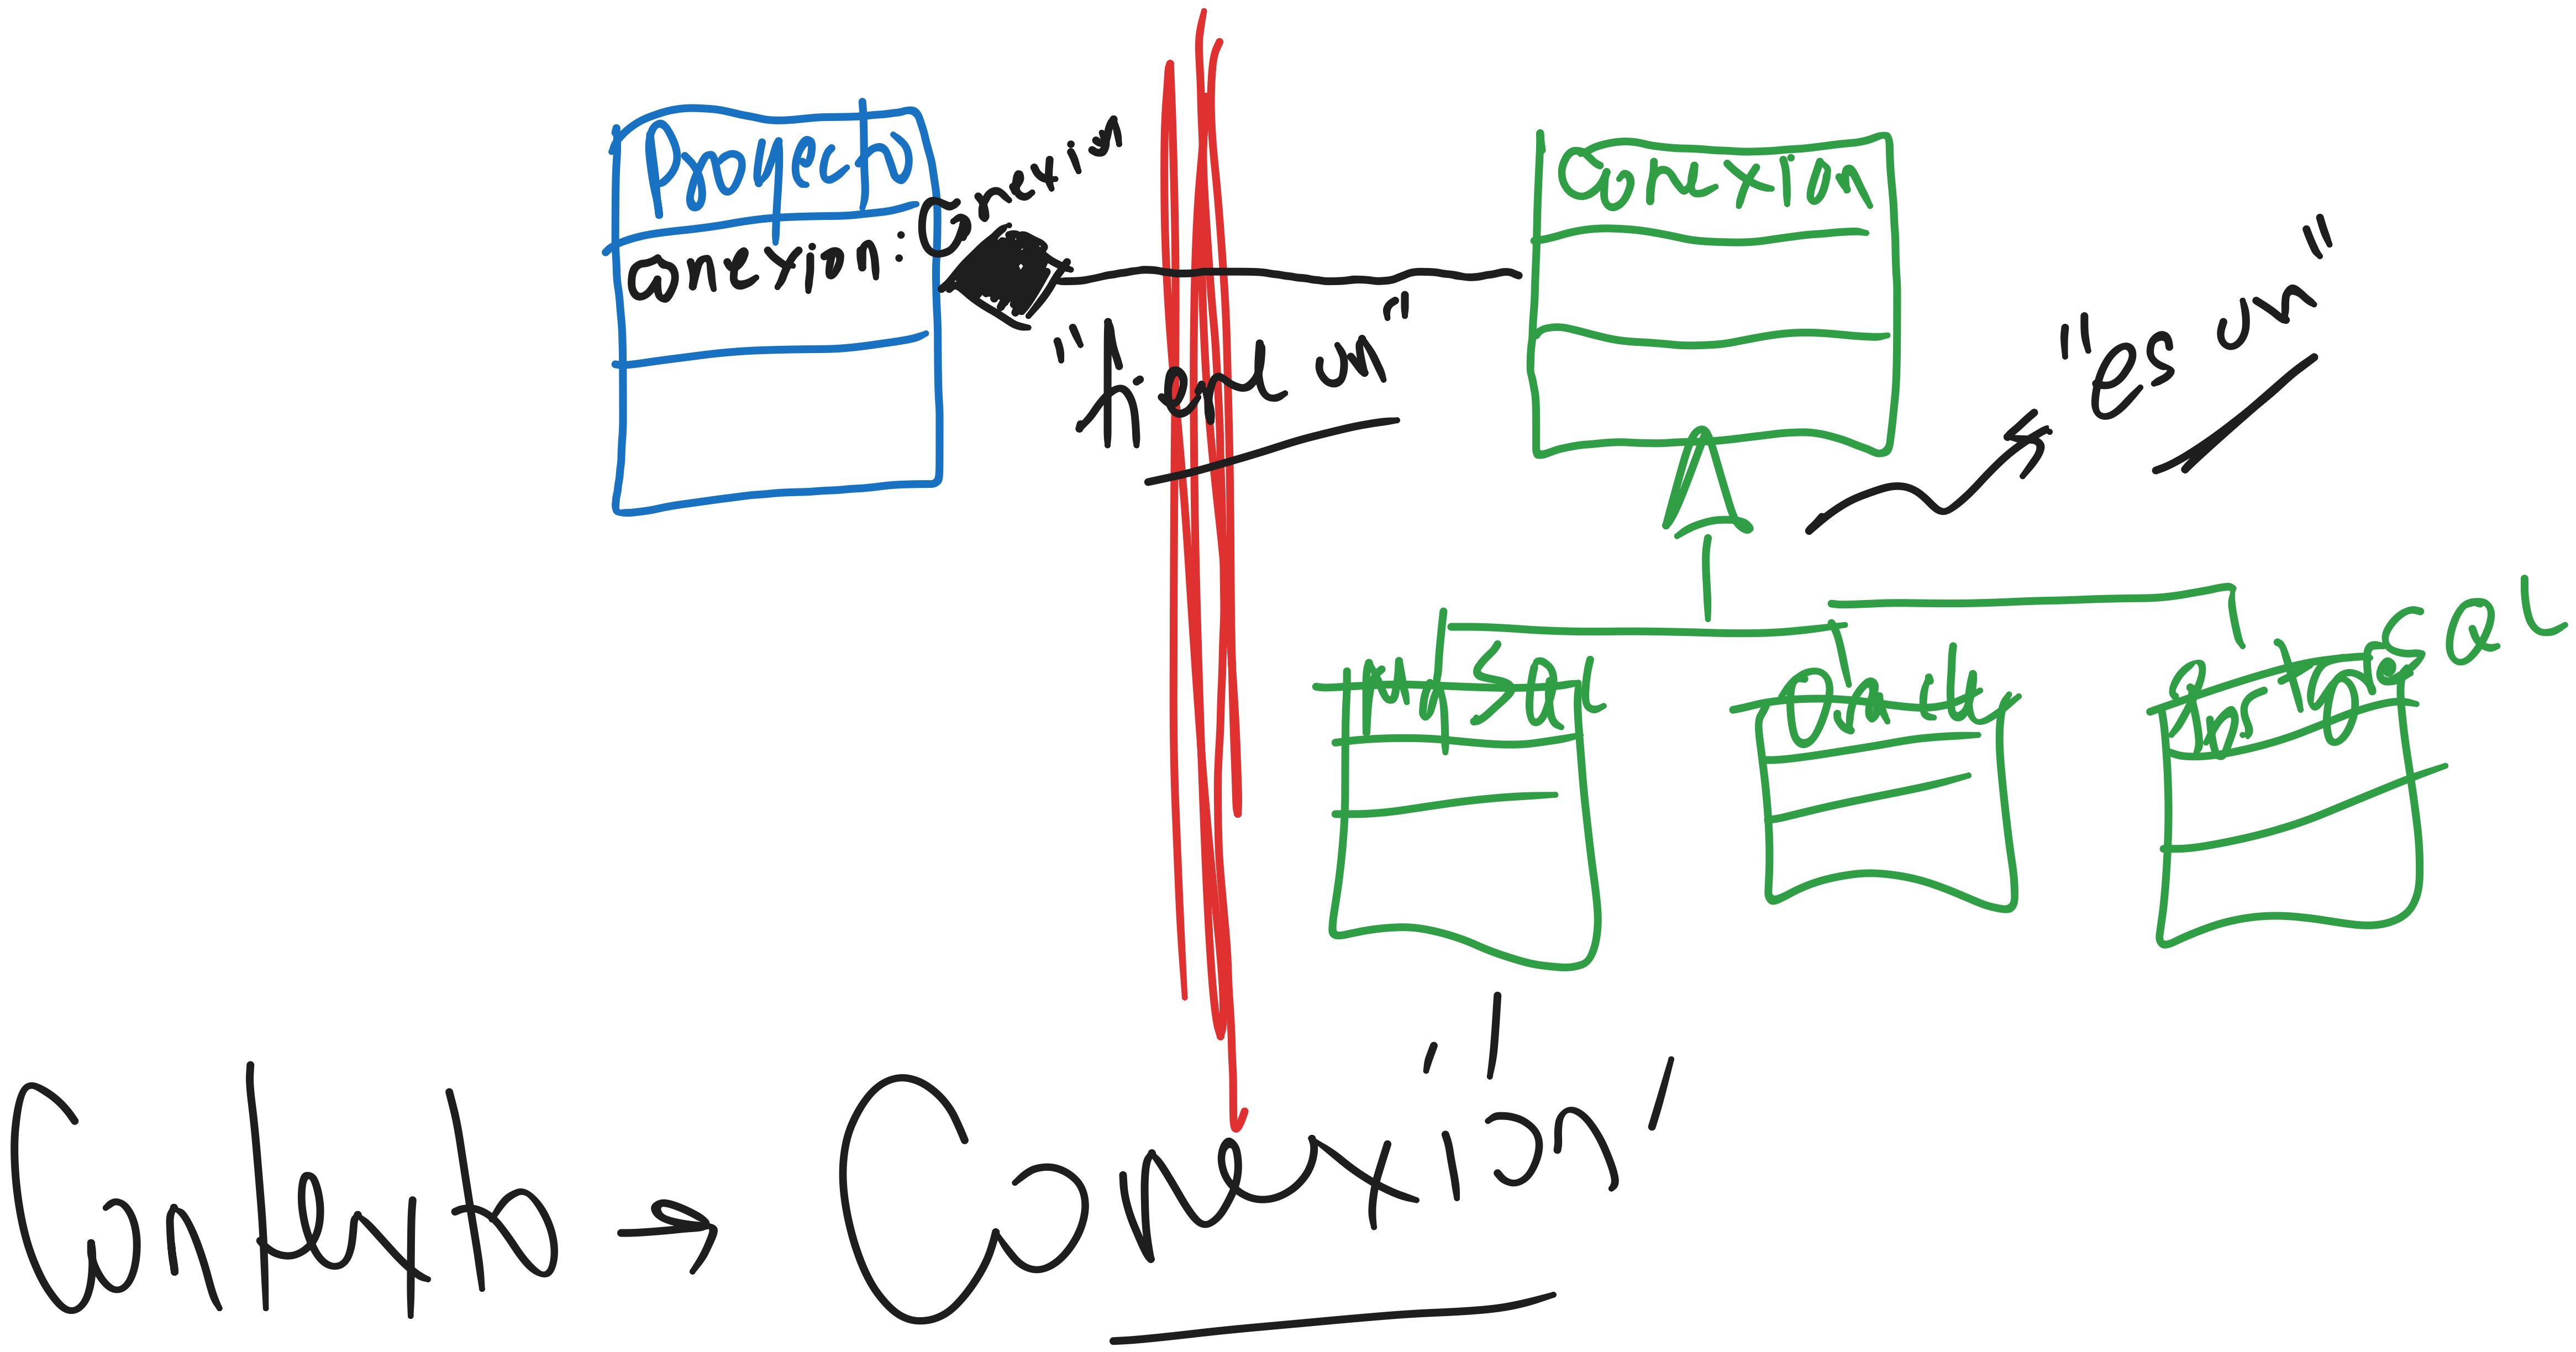 Proyecto
conexion: Conexion
"tiene un"
Conexion
"es un"
MySQL
Oracle
PostgreSQL
Contexto → Conexión